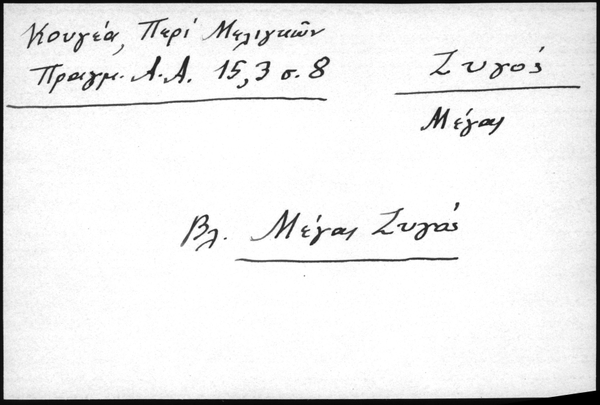 Κουγέα, Περί Μελιγκῶν
Πραγμ. Α.Α. 15,3 σ. 8
Ζυγός
Μέγας
Βλ. Μέγας Ζυγός